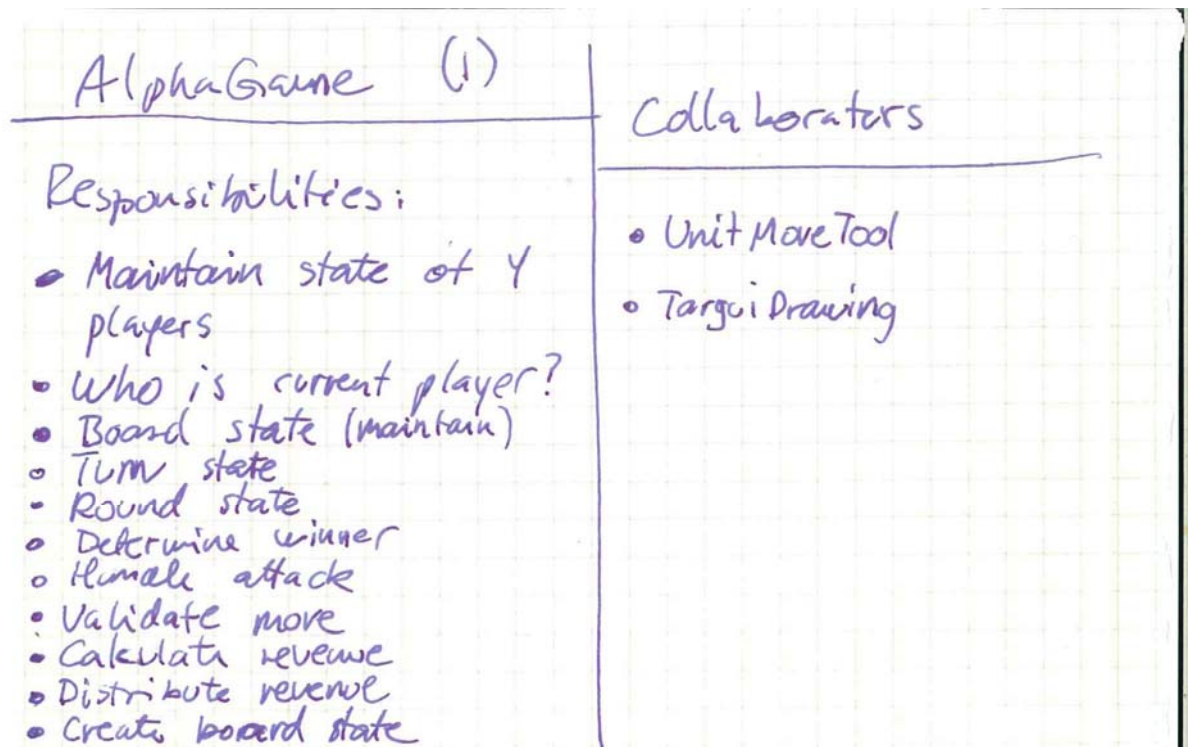 AlphaGame (1)
Responsibilities:
• Maintain state of 4
players
• Who is current player?
• Board state (maintain)
• Turn state
• Round state
• Determine winner
• attack
• Validate move
• Calculate revenue
• Distribute revenue
• Create board state
Collaborators
• UnitMoveTool
• TarguiDrawing